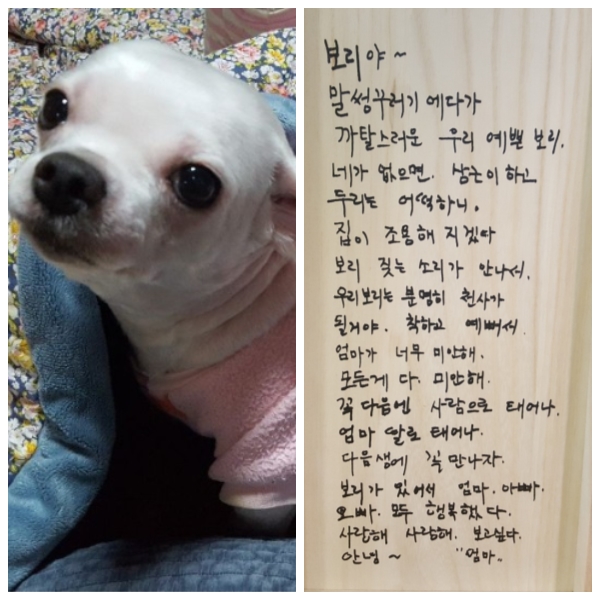 보리야~
말썽꾸러기에다가
까탈스러운 우리 예쁜 보리.
네가 없으면. 삼순이하고
두리는 어떡하니.
집이 조용해 지겠다
보리 짖는 소리가 안나서.
우리보리는 분명히 천사가
될거야. 착하고 예뻐서.
엄마가 너무 미안해.
모든게 다. 미안해.
꼭 다음엔 사람으로 태어나.
엄마 딸로 태어나.
다음생에 꼭 만나자.
보리가 있어서 엄마. 아빠.
오빠. 모두 행복했다.
사랑해 사랑해. 보고싶다.
안녕~ "엄마"